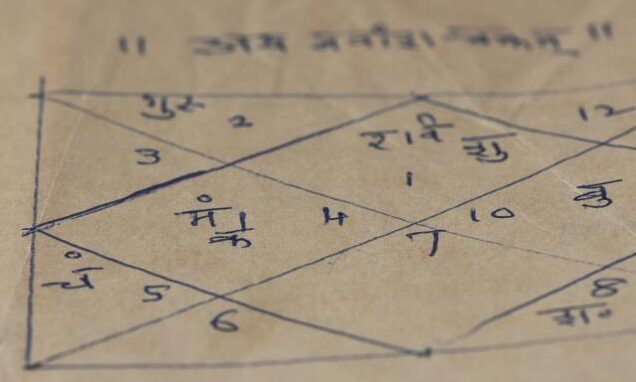 ॥ अथ नवांश चक्रम् ॥
गुरु 2 12
3 रवि शु
1 बु
मं के 4 10
7
चं 5 8
6 श॰